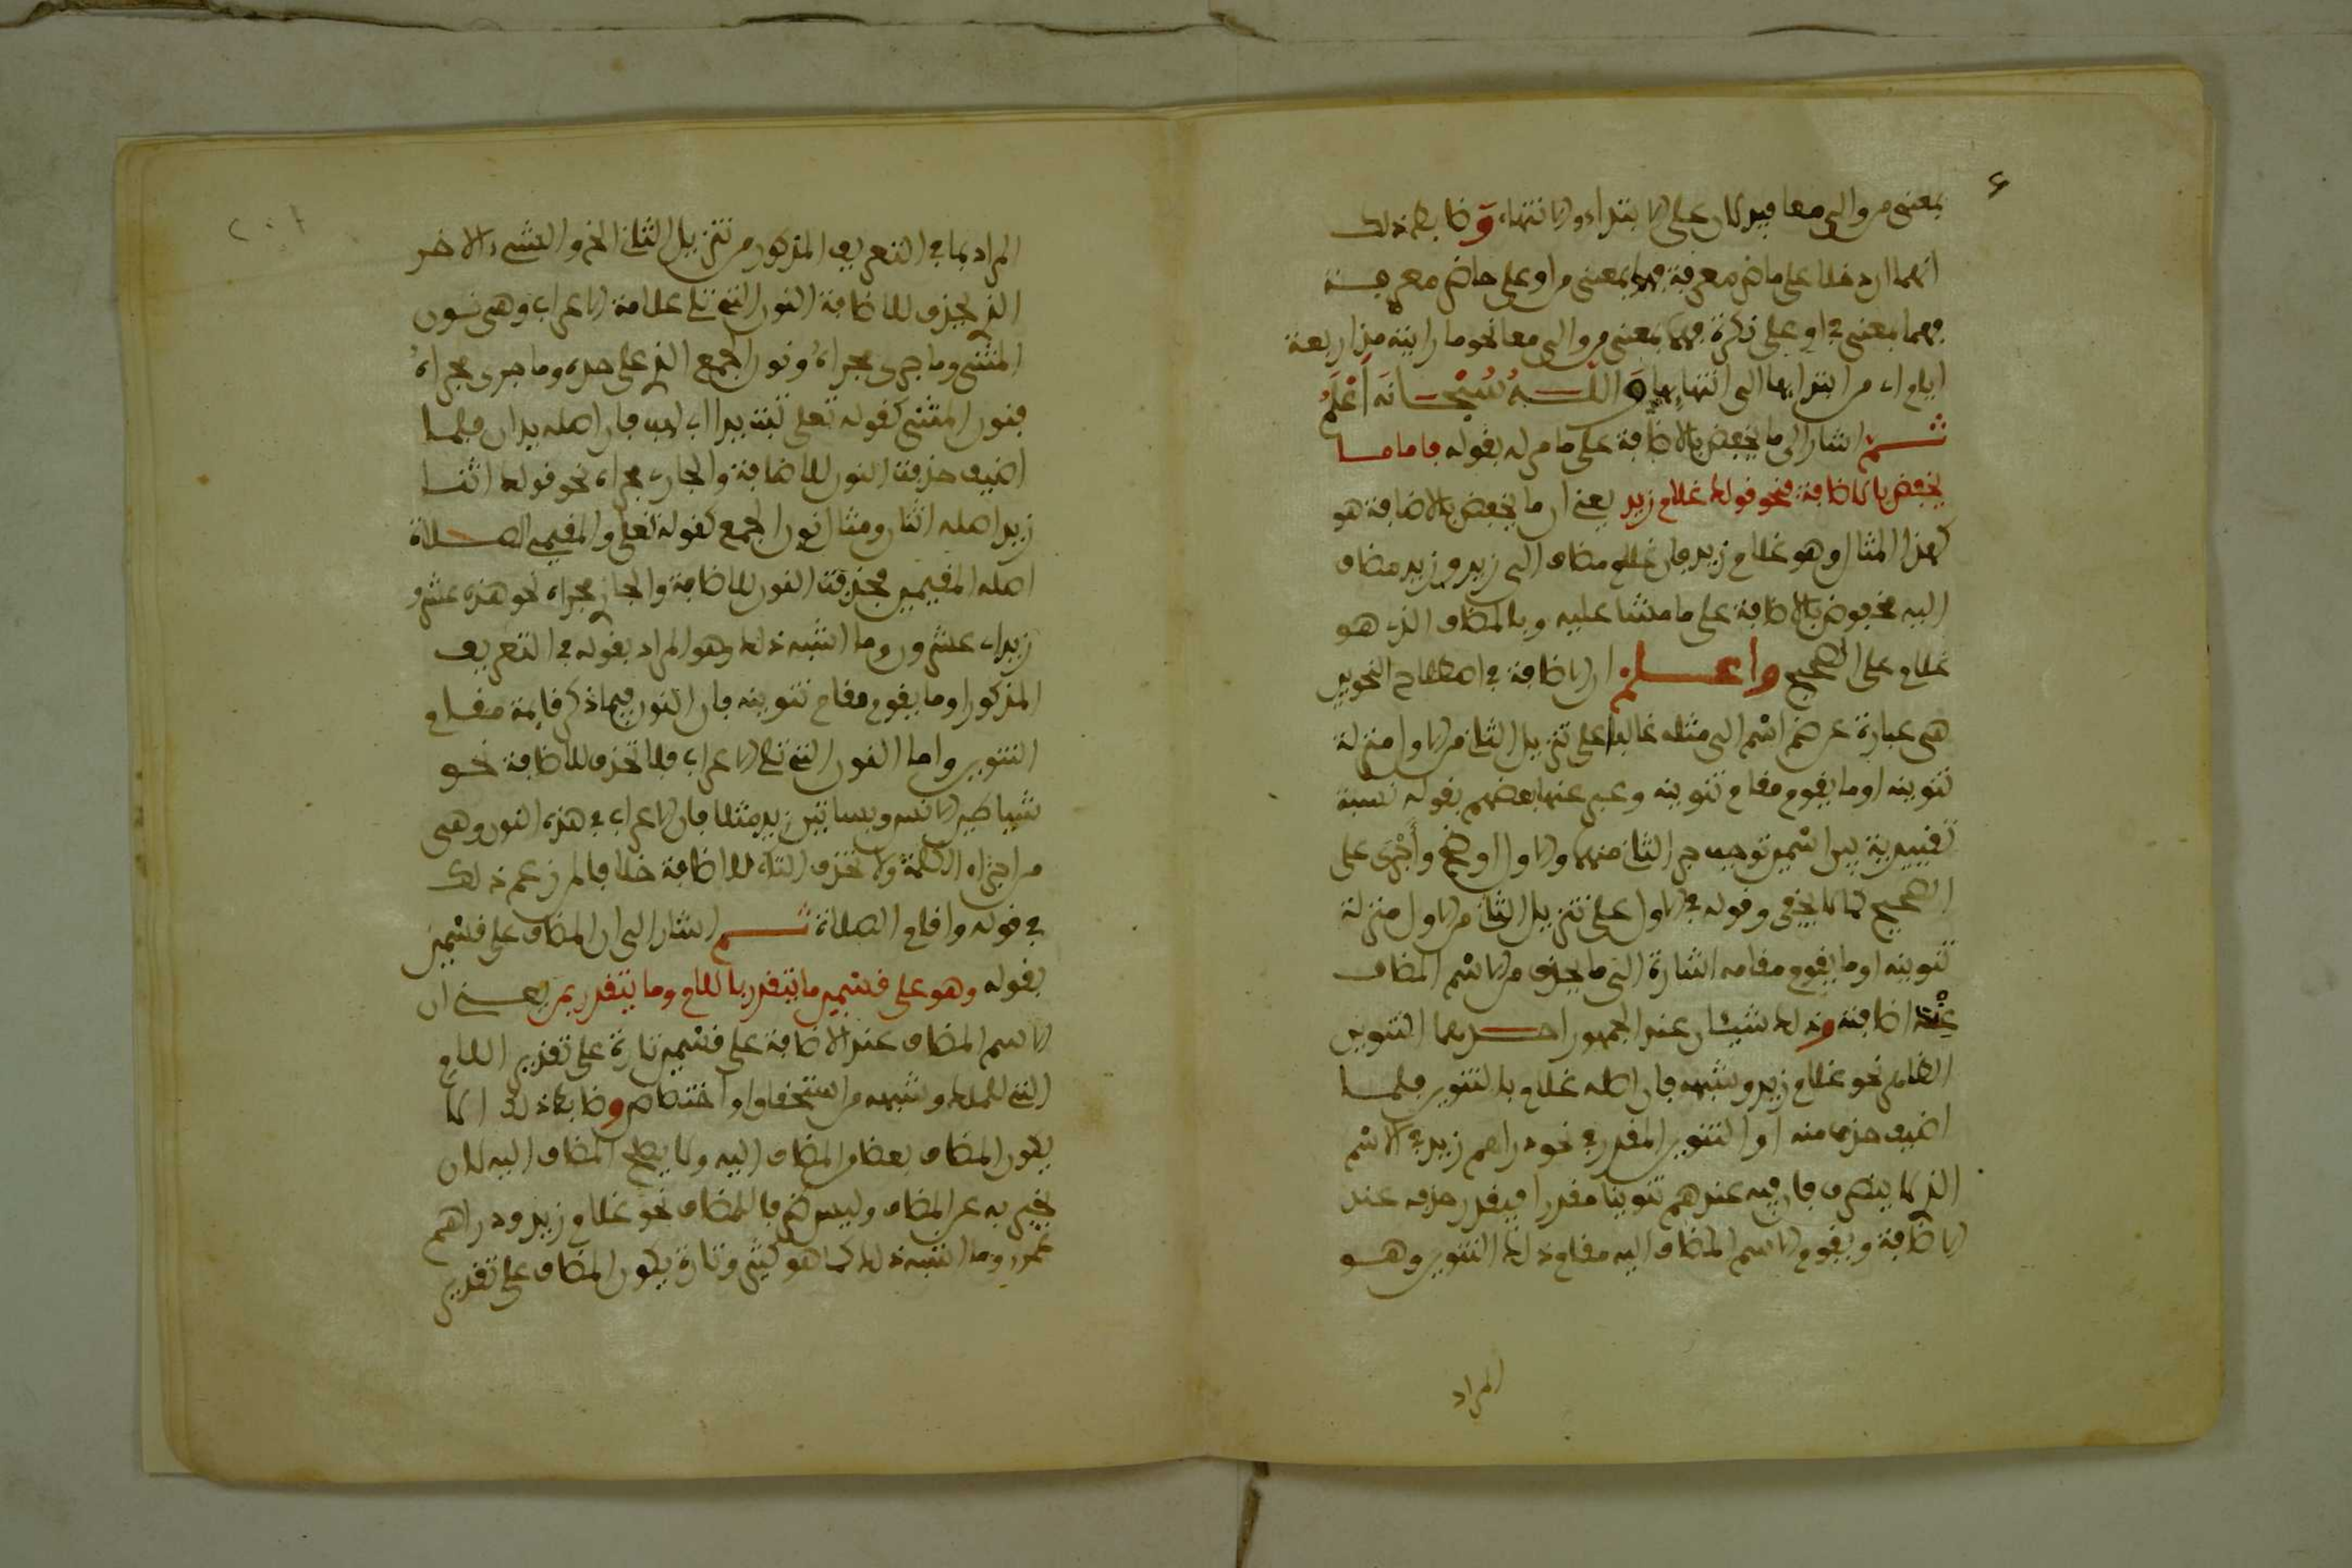 بمعنى من والى معا فيدلان على الابتداء والانتهاء وضابط ذلك
انهما ان دخلا على ماض معرفة فهما بمعنى من او على حاضر معرفة
فهما بمعنى في او على نكرة فهما بمعنى من والى معا نحو ما رايته منذ اربعة
ايام اي من ابتدايها الى انتهايها والله سبحانه اعلم
ثم اشار الى ما يخفض بالاضافة على ما مر له بقوله فاما ما
يخفض بالاضافة فنحو قولك غلام زيد يعني ان ما يخفض بالاضافة هو
كهذا المثال وهو غلام زيد فان غلام مضاف الى زيد وزيد مضاف
اليه مخفوض بالاضافة على ما مشا عليه وبالمضاف الذي هو
غلام على الصحيح واعلم ان الاضافة في اصطلاح النحويين
هي عبارة عن ضم اسم الى مثله غالبا على تنزيل الثاني من الاول منزلة
تنوينه او ما يقوم مقام تنوينه وعبر عنها بعضهم بقوله نسبة
تقييدية بين اسمين توجب جر الثاني منهما والاول اوضح وأجرى على
الصحيح كما لا يخفى وقوله في الاول على تنزيل الثاني من الاول منزلة
تنوينه او ما يقوم مقامه اشارة الى ما يحذف من الاسم المضاف
عند اضافته وذلك شيئان عند الجمهور احدهما التنوين
الظاهر نحو غلام زيد وشبهه فان اصله غلام بالتنوين فلما
اضيف حذف منه او التنوين المقدر في نحو دراهم زيد في الاسم
الذي لا ينصرف فان فيه عندهم تنوينا مقدرا فيقدر حذفه عند
الاضافة ويقوم الاسم المضاف اليه مقام ذلك التنوين وهو
المراد
المراد بما في التعريف المذكور من تنزيل الثاني الخ والشيء الاخر
الذي يحذف للاضافة النون التي تلي علامة الاعراب وهي نون
المثنى وما جرى مجراه ونون الجمع الذي على حده وما جرى مجراه
فنون المثنى كقوله تعلى تبت يدا ابي لهب فان اصله يدان فلما
اضيف حذفت النون للاضافة والجاري مجراه نحو قولك اثنا
زيد اصله اثنان ومثال نون الجمع كقوله تعلى والمقيمي الصلاة
اصله المقيمين فحذفت النون للاضافة والجاري مجراه نحو هذه عشرو
زيد اي عشرون وما اشبه ذلك وهو المراد بقوله في التعريف
المذكور او ما يقوم مقام تنوينه فان النون فيما ذكر قايمة مقام
التنوين واما النون التي تلي الاعراب فلا تحذف للاضافة نحو
شياطين الانس وبساتين زيد مثلا فان الاعراب في هذه النون وهي
من اجزاء الكلمة ولا تحذف التاء للاضافة خلافا لمن زعم ذلك
في قوله واقام الصلاة ثم اشار الى ان المضاف على قسمين
بقوله وهو على قسمين ما يتقدر باللام وما يتقدر بمن يعني ان
الاسم المضاف عند الاضافة على قسمين تارة على تقدير اللام
التي للملك وشبهه من استحقاق او اختصاص وضابط ذلك ان لا
يكون المضاف بعض المضاف اليه ولا يصلح المضاف اليه لان
يخبر به عن المضاف وليس ظرفا للمضاف نحو غلام زيد ودراهم
عمرو وما اشبه ذلك كما هو كثير وتارة يكون المضاف على تقدير